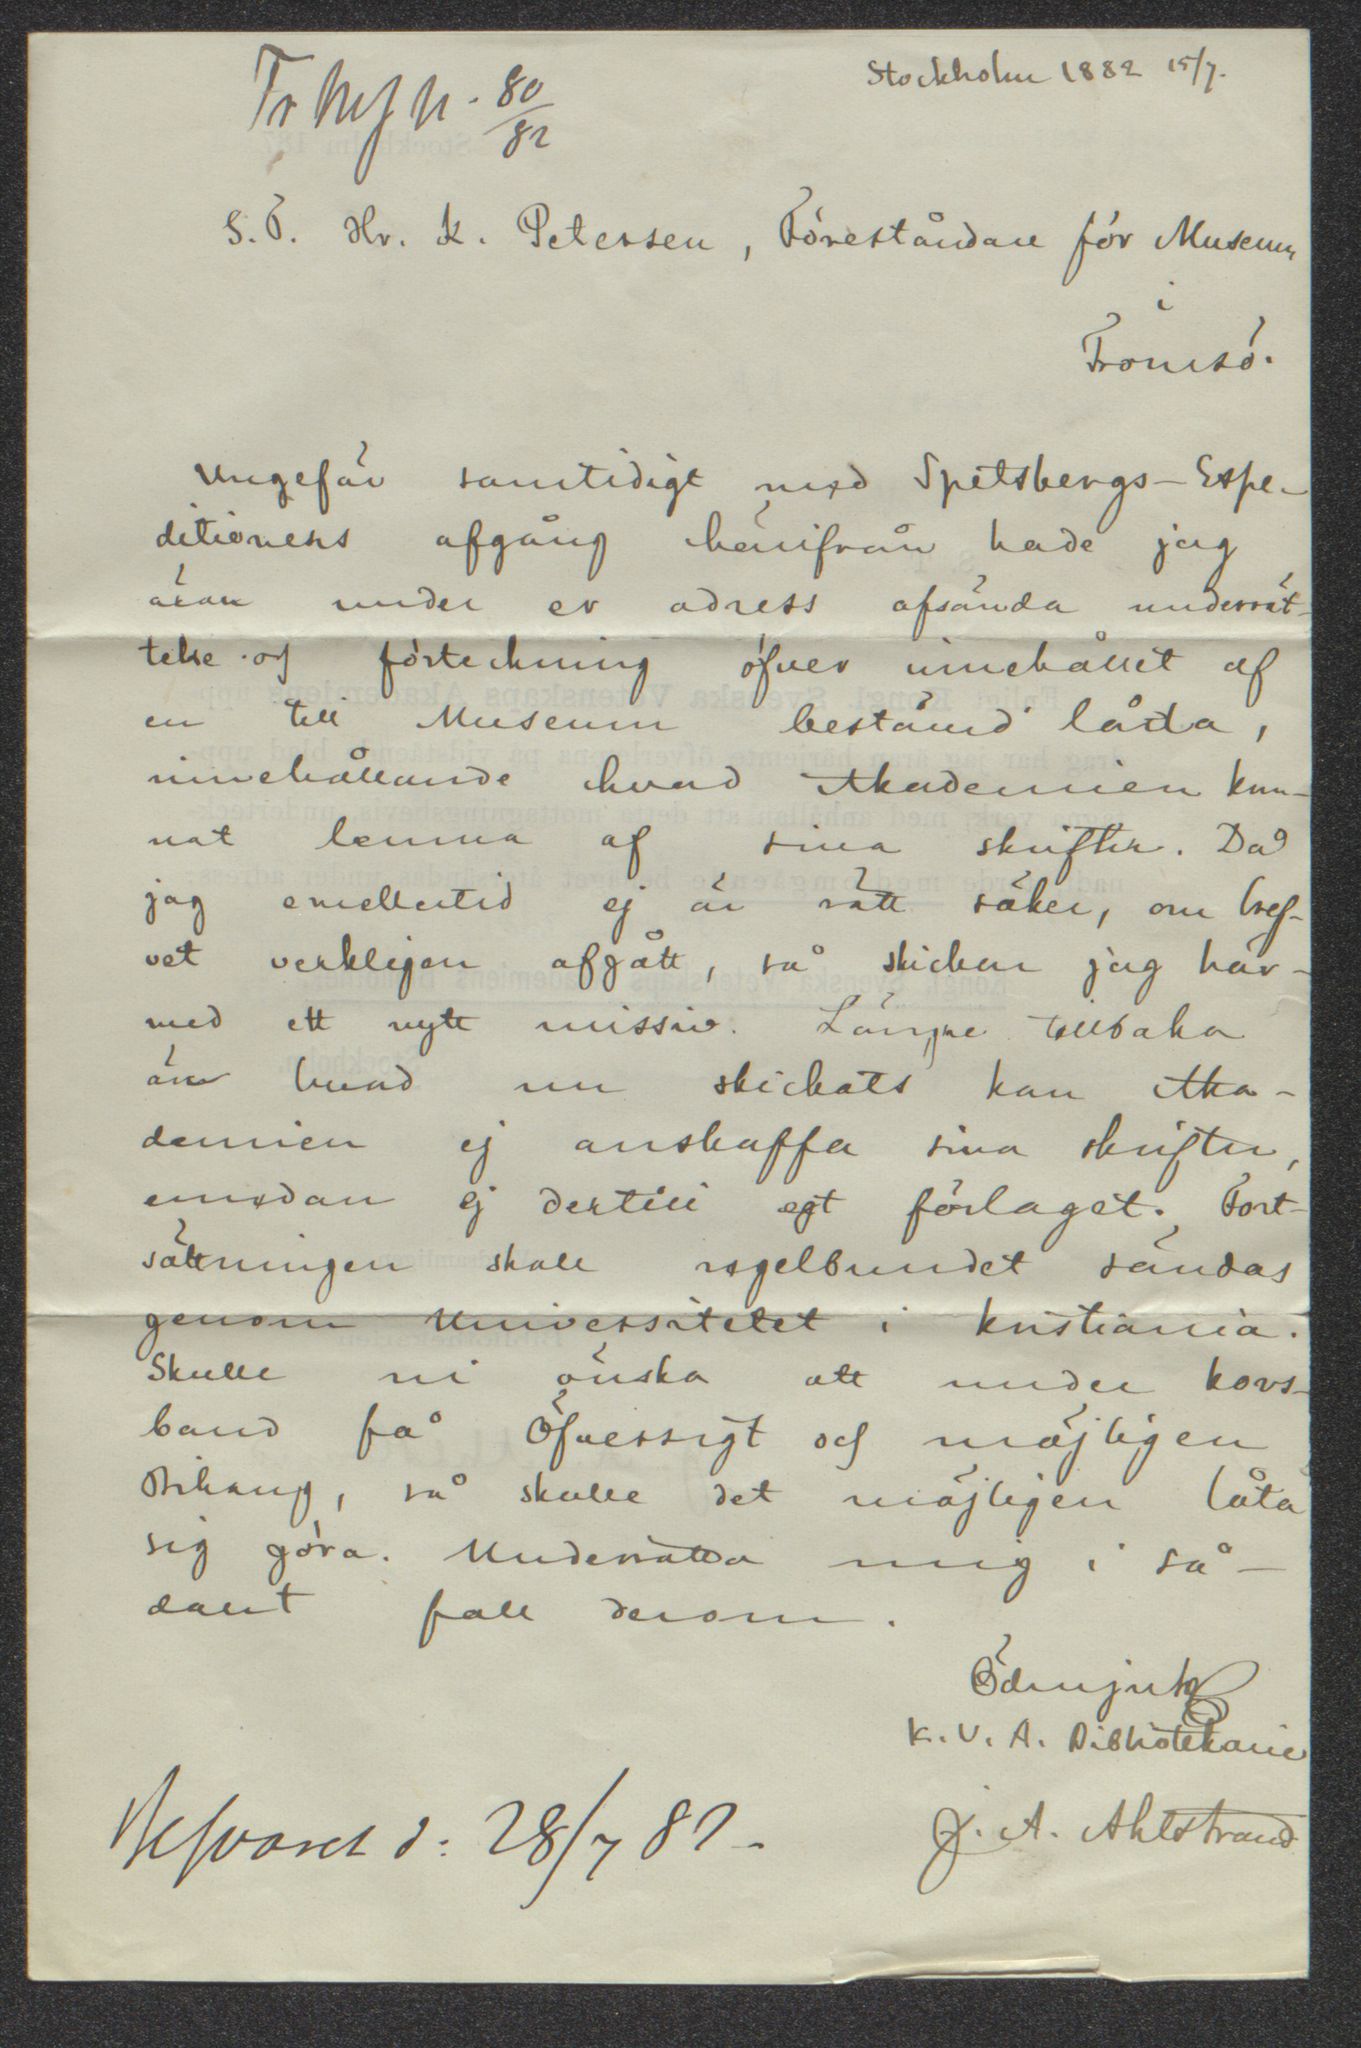 Stockholm 1882 15/7.
Tr Ms J N. 80/82
S. T. Hr. K. Petersen, Föreståndare för Museum
i
Tromsö.
Ungefär samtidigt med Spetsbergs-Expe-
ditionens afgång härifrån hade jag
äran under er adress afsända underrät-
telse och förteckning öfver innehållet af
en till Museum bestämd låda,
innehållande hvad Akademien kun-
nat lemna af sina skrifter. Då
jag emellertid ej är rätt säker, om bref-
vet verkligen afgått, så skickar jag här-
med ett nytt missiv. Längre tillbaka
än hvad nu skickats kan Aka-
demien ej anskaffa sina skrifter,
emedan ej dertill egt förlaget. Fort-
sättningen skall regelbundet sändas
genom Universitetet i Kristiania.
Skulle ni önska att under kors-
band få Öfversigt och möjligen
Bihang, så skulle det möjligen låta
sig göra. Underrätta mig i så-
dant fall derom.
Ödmjukt
K. V. A. Bibliotekarie
J. A. Ahlstrand
Besvaret d: 28/7 82.